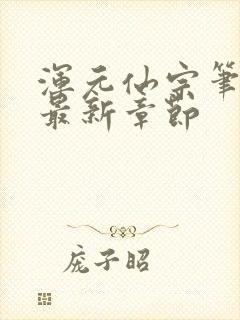 渾元仙宗筆
最新章節
庞子昭